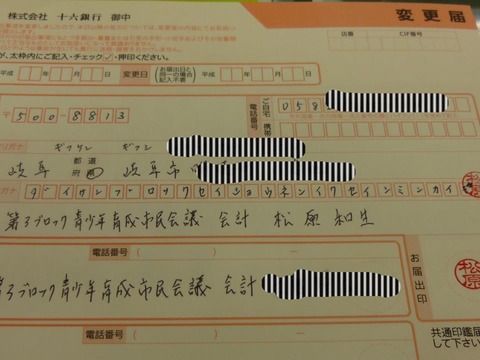 株式会社 十六銀行 御中
変更届
店番 CIF番号
太枠内にご記入・チェック✓・押印ください。
平成 年 月 日 変更日 お届出日と同一の場合記入不要 平成 年 月 日
〒500-8813 電話番号 ご自宅 携帯 058
フリガナ ギフケン ギフシ
岐阜 都道府県 岐阜市
フリガナ ダイサンブロックセイショウネンイクセイシミンカイ
第3ブロック青少年育成市民会議 会計 松原和生
松原
電話番号 ( ) －
お届出印
第3ブロック青少年育成市民会議 会計
松原
電話番号 ( ) －
共通印鑑届
して下さい